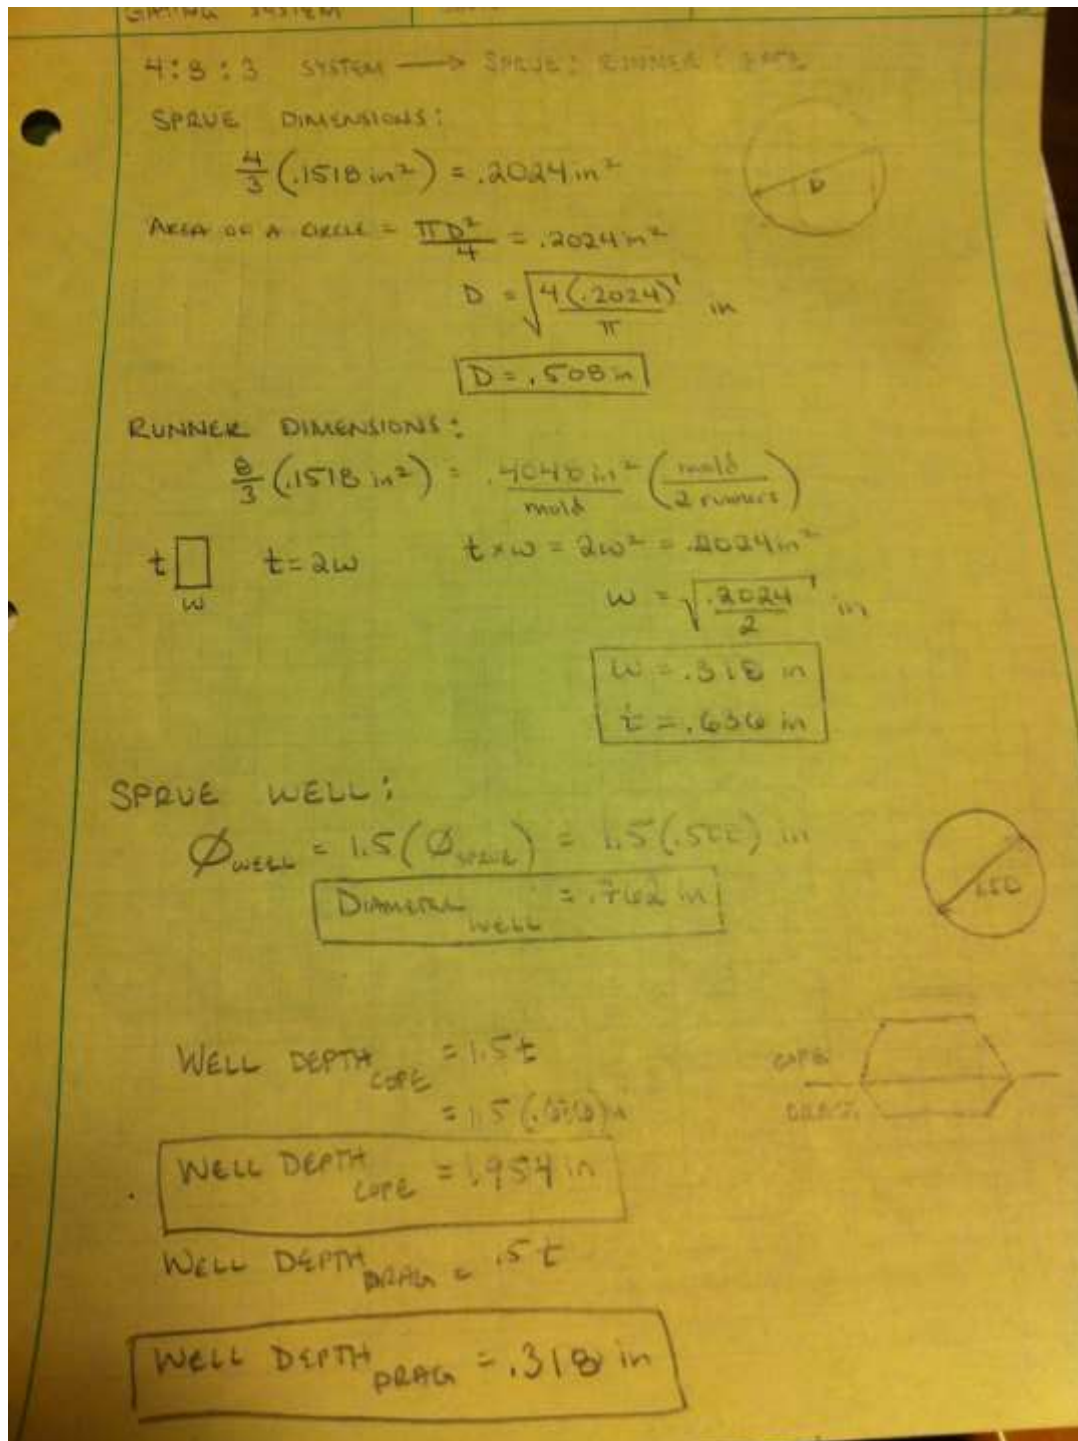 GATING SYSTEM
4:8:3 SYSTEM → SPRUE: RUNNER: GATE
SPRUE DIMENSIONS:
4/3 (.1518 in²) = .2024 in²
D
AREA OF A CIRCLE = πD²/4 = .2024 in²
D = √(4(.2024)/π) in
D = .508 in
RUNNER DIMENSIONS:
8/3 (.1518 in²) = .4048 in²/mold (mold/2 runners)
t w t = 2w t × w = 2w² = .2024 in²
w = √(.2024/2) in
w = .318 in
t = .636 in
SPRUE WELL:
Ø WELL = 1.5 (Ø SPRUE) = 1.5 (.508) in
1.5D
DIAMETER WELL = .762 in
WELL DEPTH COPE = 1.5t
COPE
= 1.5 (.636) in
DRAG
WELL DEPTH COPE = .954 in
WELL DEPTH DRAG = .5t
WELL DEPTH DRAG = .318 in